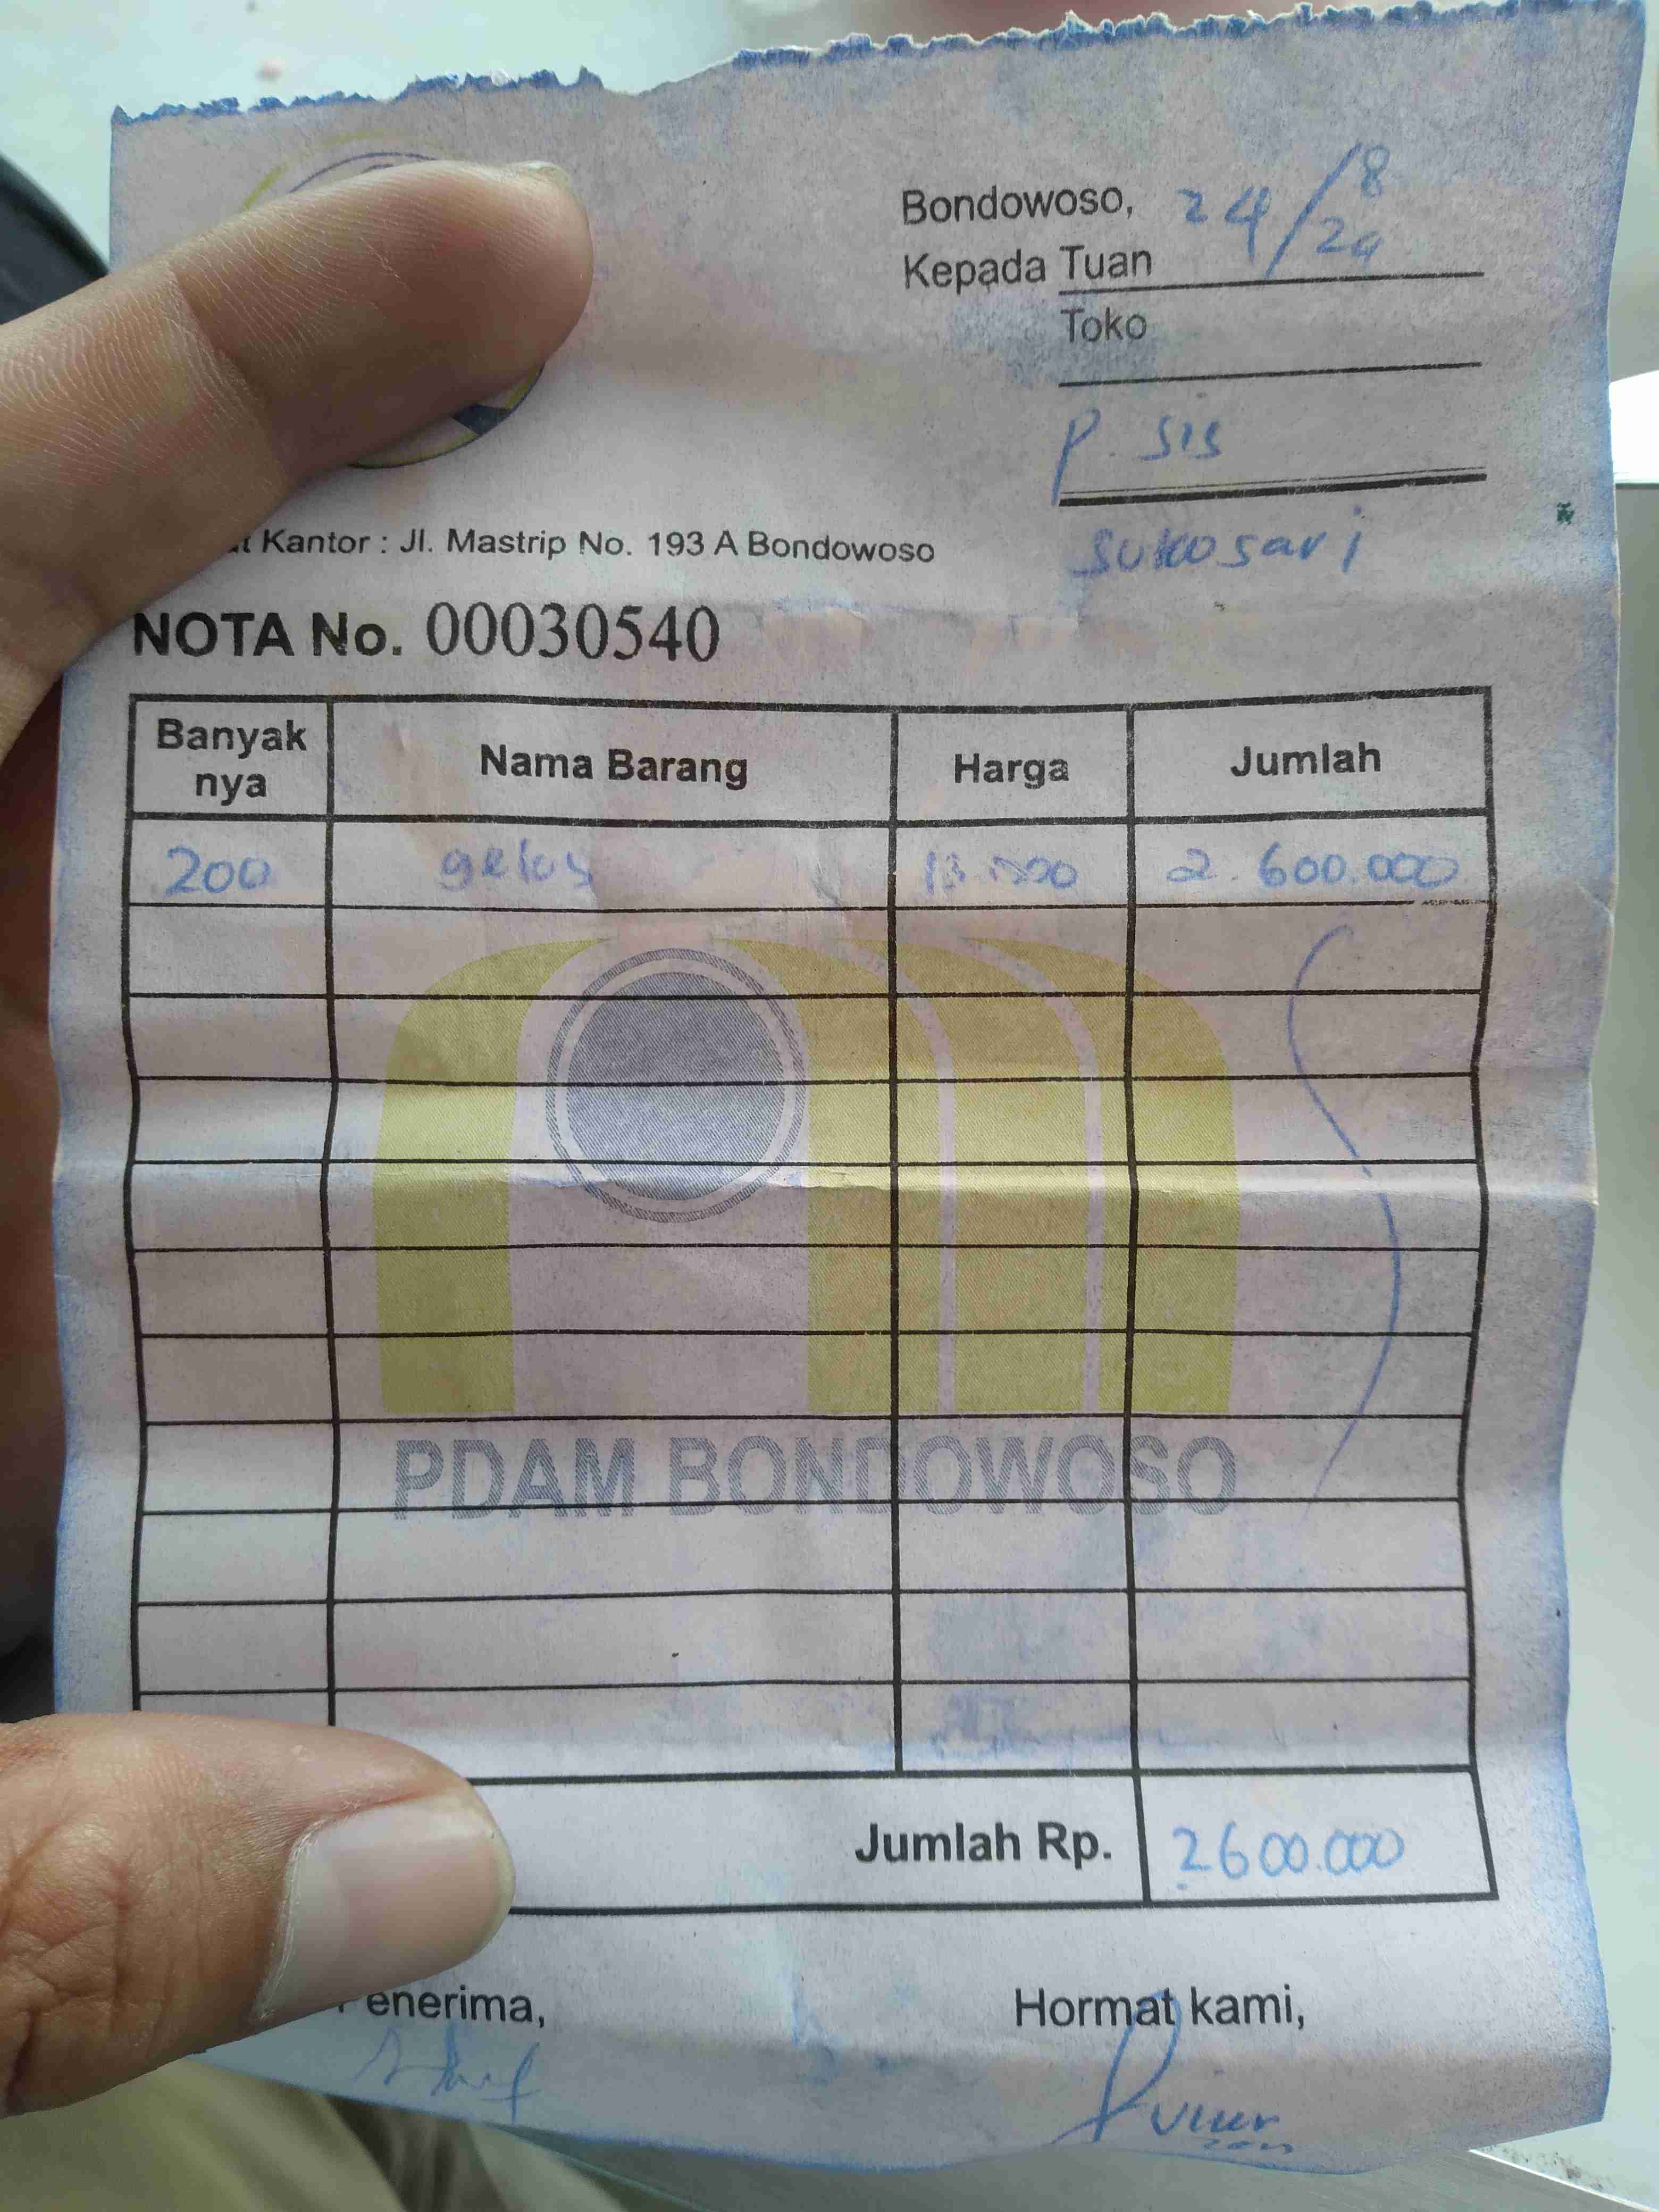 Bondowoso, 24/8/24
Kepada Tuan
Toko
P. SIS
Sukosari
Kantor : Jl. Mastrip No. 193 A Bondowoso
NOTA No. 00030540
Banyak nya Nama Barang Harga Jumlah
200 gelas 13.000 2.600.000
PDAM BONDOWOSO
Jumlah Rp. 2600.000
enerima, Hormat kami,